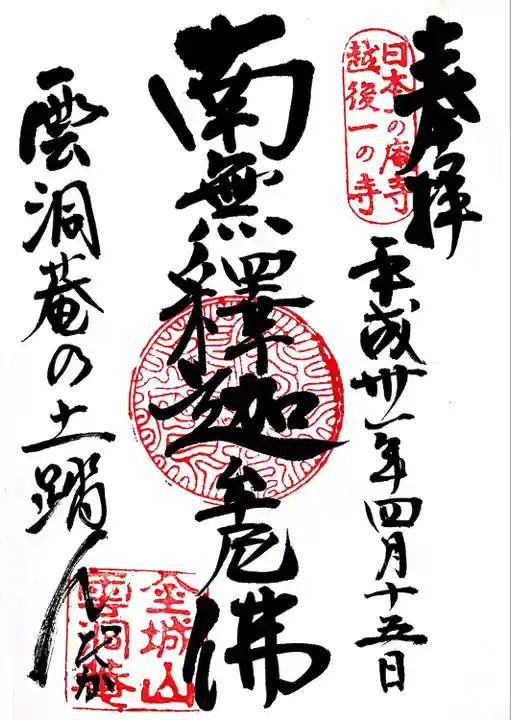 奉拝
日本一の庵寺
越後一の寺
平成卅一年四月十五日
南無釋迦牟尼佛
雲洞菴の土踏んだか
金城山
雲洞菴